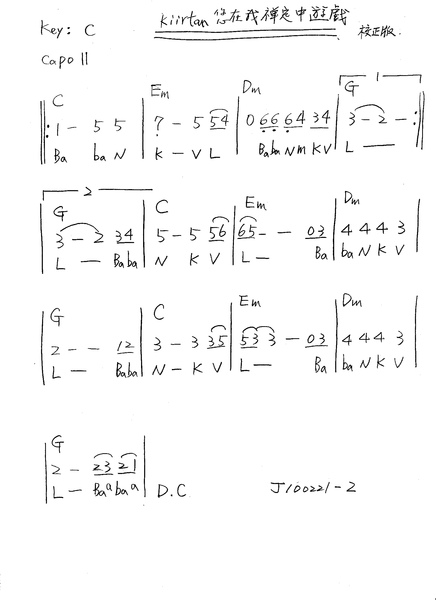 Key: C    Kiirtan 您在我禪定中遊戲    校正版.
Capo 11
C    Em    Dm    G 1
‖: 1 - 5 5 | 7 - 5 54 | 0 66 64 34 | 3 - 2 - :‖
Ba ba N K - V L Ba ba N m K V L —
2
G    C    Em    Dm
3 - 2 34 | 5 - 5 56 | 65 - - 03 | 4 4 4 3
L — Baba N K V L — Ba ba N K V
G    C    Em    Dm
2 - - 12 | 3 - 3 35 | 53 3 - 03 | 4 4 4 3
L — Baba N - K V L — Ba ba N K V
G
2 - 23 21 |
L - Baa baa D.C    J100221-2